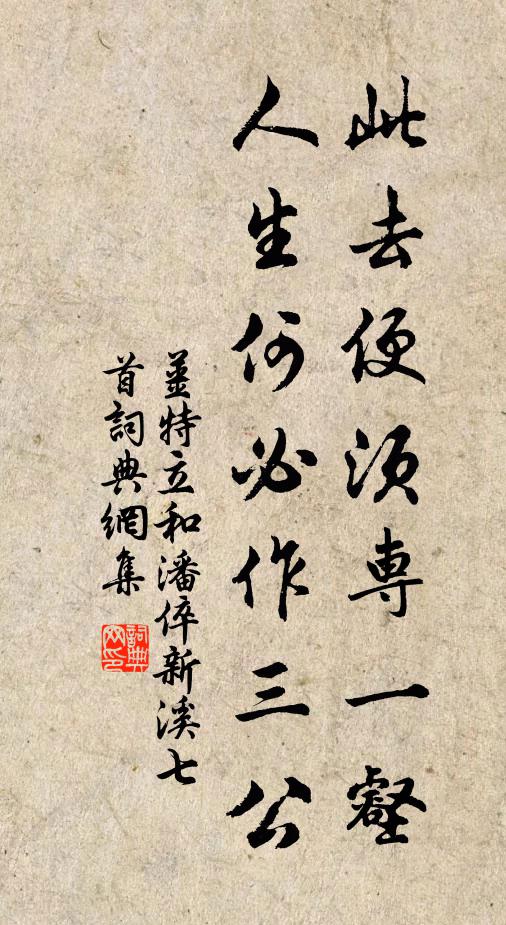 此去便须専一壑
人生何必作三公
姜特立和潘倅新溪七
首詞典網集
詞典网印